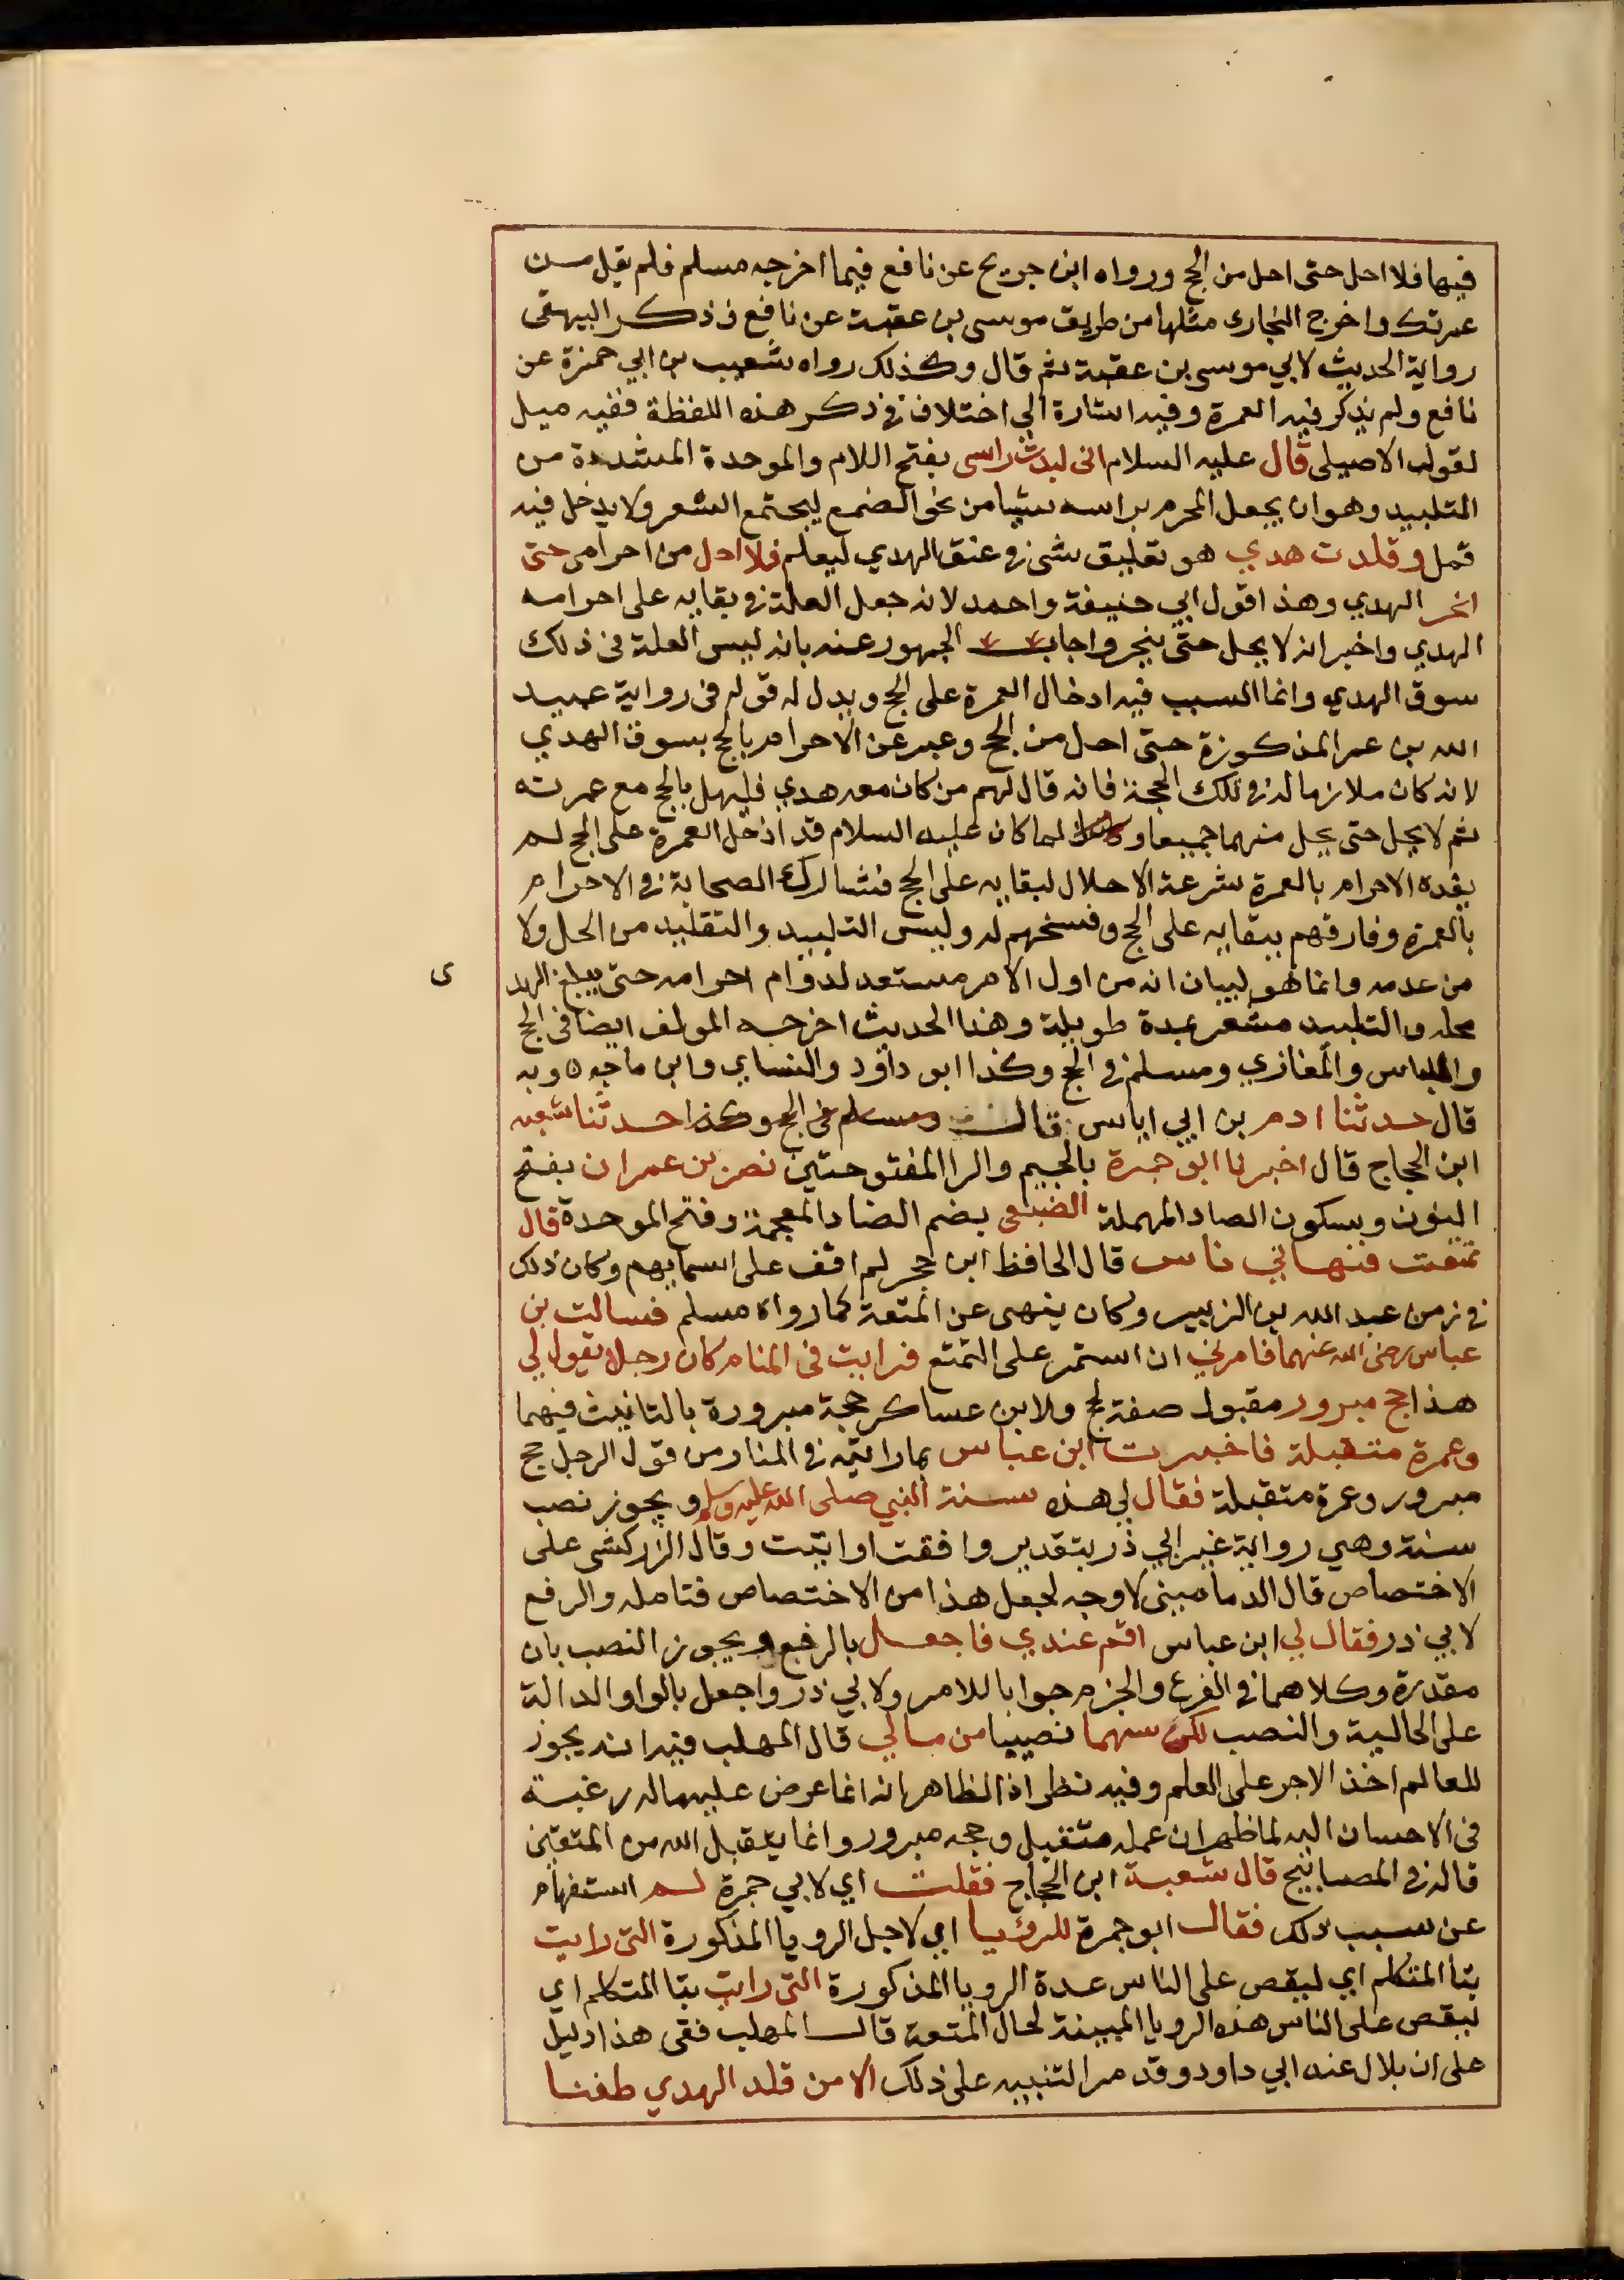 فيها فلا احل حتى احل من الحج ورواه ابن جريج عن نافع فيما اخرجه مسلم فلم يقل من
عمرتك واخرج البخاري مثلها من طريق موسى بن عقبة عن نافع فذكر البيهقي
رواية الحديث لابي موسى بن عقبة ثم قال وكذلك رواه شعيب بن ابي حمزة عن
نافع ولم يذكر فيه العمرة وفيه اشارة الى اختلاف في ذكر هذه اللفظة ففيه ميل
لقول الاصيلى قال عليه السلام اني لبدت راسى بفتح اللام والموحدة المشددة من
التلبيد وهو ان يجعل المحرم براسه شيا من نحو الصمع ليجتمع الشعر ولا يدخل فيه
قمل وقلدت هدي هو تعليق شى في عنق الهدي ليعلم فلا احل من احرامى حتى
انحر الهدي وهذا قول ابي حنيفة واحمد لانه جعل العلة في بقايه على احرامه
الهدي واخبر انه لا يحل حتى ينحر واجاب الجمهور عنه بانه ليس العلة فى ذلك
سوق الهدي وانما السبب فيه ادخال العمرة على الحج ويدل له قوله فى رواية عبيد
الله بن عمر المذكورة حتى احل من الحج وعبر عن الاحرام بالحج بسوق الهدي
لانه كان ملازما له في تلك الحجة فانه قال لهم من كان معه هدي فليهل بالحج مع عمرته
ثم لا يحل حتى يحل منهما جميعا ولما كان عليه السلام قد ادخل العمرة على الحج لم
يفده الاحرام بالعمرة سرعة الاحلال لبقايه على الحج فشارك الصحابة في الاحرام
بالعمرة وفارقهم ببقايه على الحج وفسخهم له وليس التلبيد والتقليد من الحل ولا
من عدمه وانما هو لبيان انه من اول الامر مستعد لدوام احرامه حتى يبلغ الهد
ى
محله والتلبيد مشعر بمدة طويلة وهذا الحديث اخرجه المولف ايضا فى الحج
واللباس والمغازي ومسلم في الحج وكذا ابو داود والنساي وابن ماجه ه وبه
قال حدثنا ادم بن ابي اياس قال ومسلم فى الحج وكذا حدثنا شعبه
ابن الحجاج قال اخبرنا ابو جمرة بالجيم والرا المفتوحتين نصر بن عمران بفتح
النون وبسكون الصاد المهملة الضبعى بضم الضاد المعجمة وفتح الموحدة قال
تمتعت فنهاني ناس قال الحافظ ابن حجر لم اقف على اسمايهم وكان ذلك
في زمن عبد الله بن الزبير وكان ينهى عن المتعة كما رواه مسلم فسالت بن
عباس رضى الله عنهما فامرني ان استمر على التمتع فرايت فى المنام كان رجلا يقول لي
هذا حج مبرور مقبول صفة لحج ولابن عساكر حجة مبرورة بالتانيث فيهما
وعمرة متقبلة فاخبرت ابن عباس بما رايته في المنام من قول الرجل حج
مبرور وعمرة متقبلة فقال لي هذه سنة النبي صلى الله عليه وسلم ويجوز نصب
سنة وهي رواية غير ابي ذر بتقدير وافقت او اتيت وقال الزركشى على
الاختصاص قال الدمامينى لا وجه لجعل هذا من الاختصاص فتامله والرفع
لابي ذر فقال لي ابن عباس اقم عندي فاجعل بالرفع ويجوز النصب بان
مقدرة وكلاهما في الفرع والجزم جوابا للامر ولابي ذر واجعل بالواو الدالة
على الحالية والنصب لكن سهما نصيبا من مالي قال المهلب فيه انه يجوز
للعالم اخذ الاجر على العلم وفيه نظر اذ الظاهر انه انما عرض عليه ماله رغبة
فى الاحسان اليه لما ظهر ان عمله متقبل وحجه مبرور وانما يتقبل الله من المتقين
قاله في المصابيح قال شعبة ابن الحجاج فقلت اي لابي جمرة لم استفهام
عن سبب ذلك فقال ابو جمرة للرؤيا اي لاجل الرويا المذكورة التى رايت
بتا المتكلم اي ليقص على الناس عدة الرويا المذكورة التى رايت بتا المتكلم اي
ليقص على الناس هذه الرويا المبينة لحال المتعة قال المهلب ففى هذا دليل
على ان بلال عند ابي داود وقد مر التنبيه على ذلك الا من قلد الهدي طفنا